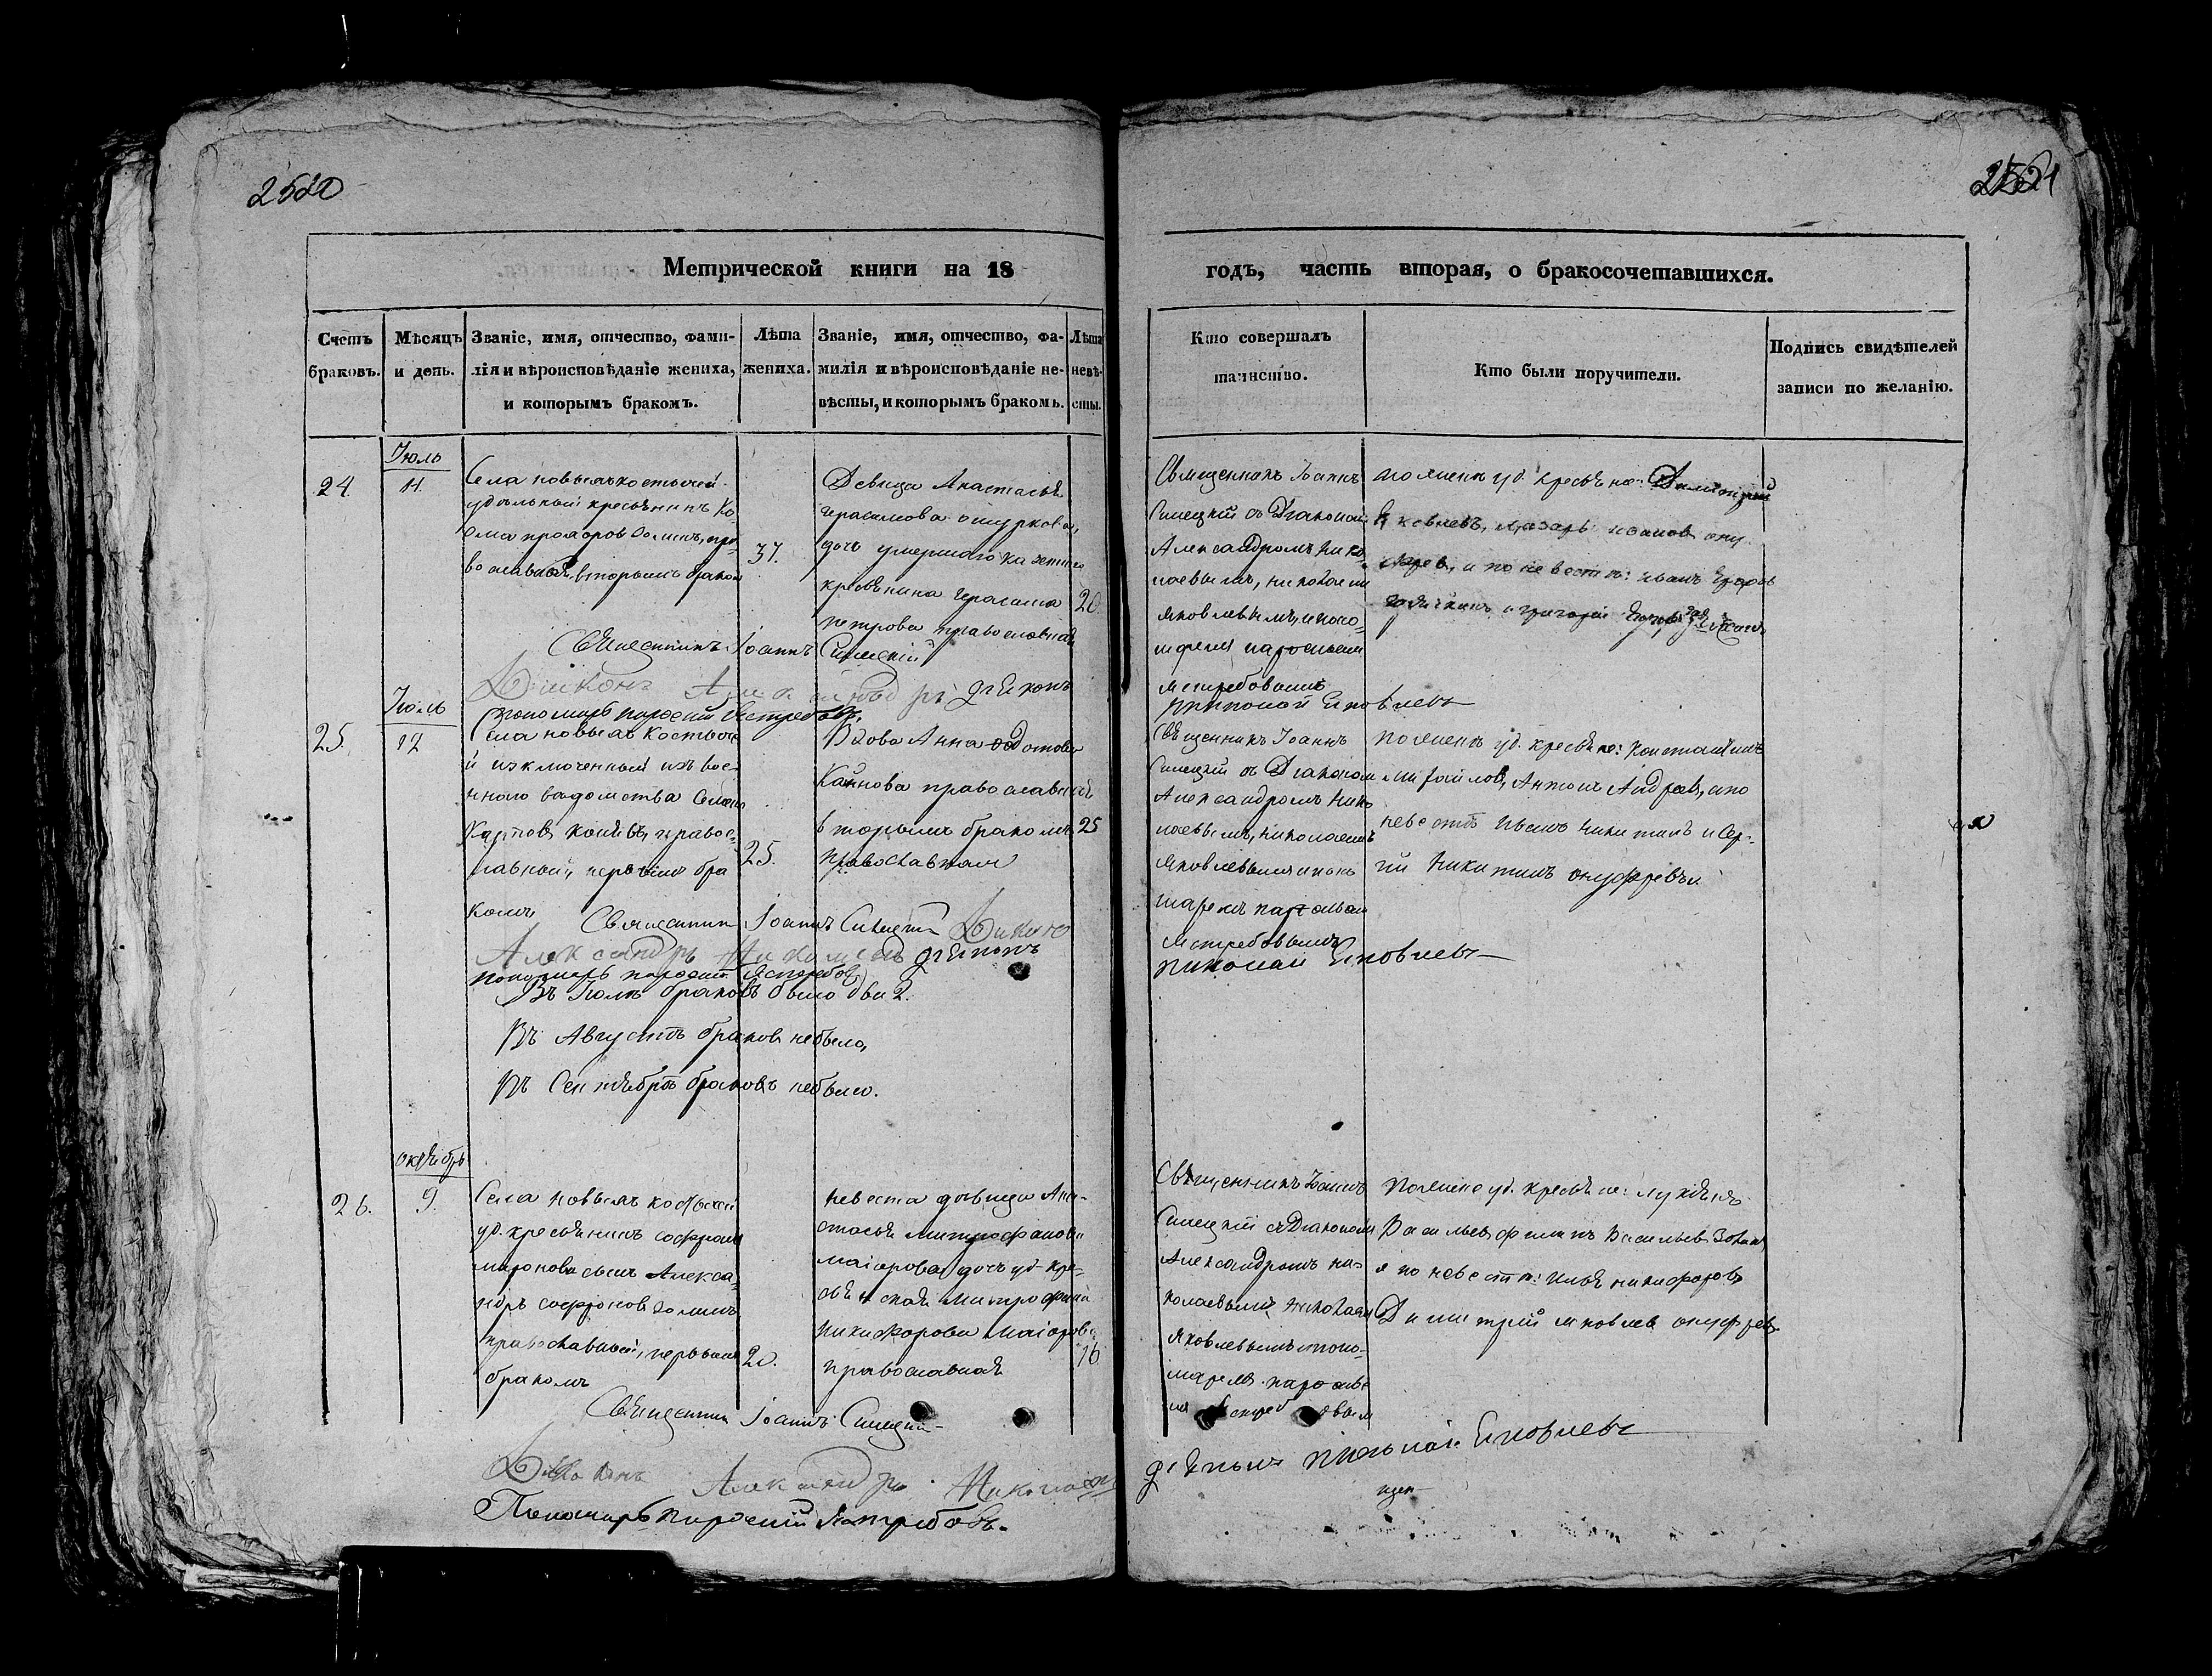 2520
2521
Метрической книги на 18
годъ, часть вторая, о бракосочетавшихся.
Счетъ браковъ.
Мѣсяцъ и день.
Званіе, имя, отчество, фами-
лія и вѣроисповѣданіе жениха,
и которымъ бракомъ.
Лѣта
жениха.
Званіе, имя, отчество, фа-
милія и вѣроисповѣданіе не-
вѣсты, и которымъ бракомъ.
Лѣта
невѣ-
сты.
Кто совершалъ
таинство.
Кто были поручители.
Подпись свидѣтелей
записи по желанію.
24.
Іюль
11.
Села новыхъ костычей
удѣльный кресьянинъ Ко-
зма прохоров зоминъ, пра-
вославной, вторымъ браком
37.
Девица Анастасья
герасимова
дочь умершаго казеннаго
кресьянина Герасима
петрова православная
20
Священникъ Іоаннъ
Симецкій съ Діакономъ
Александромъ Нико
лаевымъ, николаем
яковлевымъ, и поно-
марем
ястребовымъ
по женихе уд. кресьяне: Димитрий
Яковлевъ, лазарь иванов
и по невесте: иванъ Егоров
и григорий
Священникъ Іоаннъ Симецкій
Діаконъ Александръ дьяконъ
пономарь Ястребовъ.
николай Яковлевъ
25.
Іюль
12
Села новыхъ костыче
й изключенный изъ вое-
ннаго ведомства Семенъ
Карповъ правос-
лавной, первымъ бра
комъ
25.
Вдова Анна федотова
православной
вторымъ бракомъ
православная
25
Священникъ Іоаннъ
Симецкій съ Діакономъ
Александромъ Нико
лаевымъ, николаемъ
яковлевымъ и поно
марем
ястребовымъ
по женихе уд. кресьяне: Константинъ
михайловъ, Антонъ Андреевъ, а по
невесте Иванъ Никитинъ и Сер-
гий Никитинъ онуфревъ
Священникъ Іоаннъ Симецкій Діаконъ
Александръ Николаевъ дьяконъ
николай Яковлевъ
пономарь Ястребовъ
Въ Іюле браковъ было два 2.
Въ Августе браковъ небыло,
Въ Сентябре браковъ небыло.
26.
октябрь
9.
Села новыхъ костычей
уд. кресьянинъ софрона
миронова сынъ Алекса-
ндръ софроновъ зоминъ
православной, первымъ
бракомъ
20.
невеста девица Ана-
стасья митрофанова
маіорова дочь уд. кре-
сьянская митрофана
никифорова маіорова
православная
16
Священникъ Іоаннъ
Симецкій съ Діакономъ
Александромъ ни-
колаевымъ николаем
яковлевымъ и поно-
марем
по женихе уд. кресьяне: лукьянъ
Васильевъ филипъ Васильев Зомин
а по невесте: илья никифоровъ
Димитрий яковлев онуфревъ
Священникъ Іоаннъ Симецкій
Діаконъ Александръ Николаевъ
дьяконъ николай Яковлевъ
Пономарь Ястребовъ.